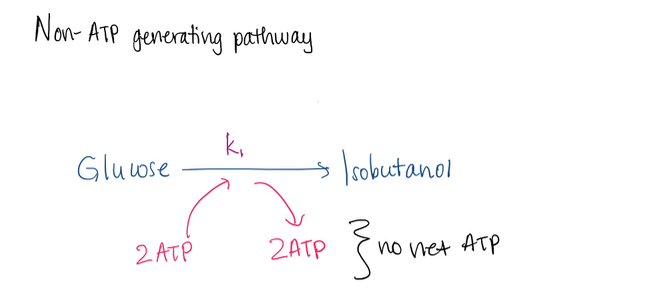 Non-ATP generating pathway
k₁
Glucose
Isobutanol
2ATP
2ATP
no net ATP